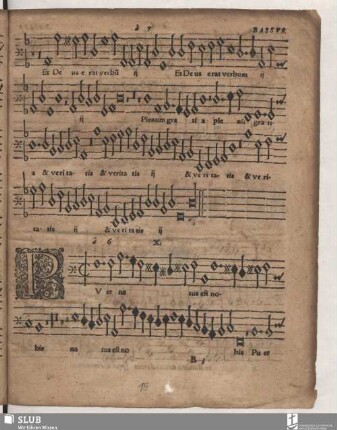 BASSVS.
Et De us e rat verbũ ij Et De us erat verbum ij
ij Plenum gra ti a ple na gra ti
a & veri ta tis & verita tis ij & ve ri ta tis & ve ri-
ta tis ij & ve ri ta tis ij
X.
P V er na tus est no-
bis na tus est no bis Pu er
B
SLUB
Wir führen Wissen.